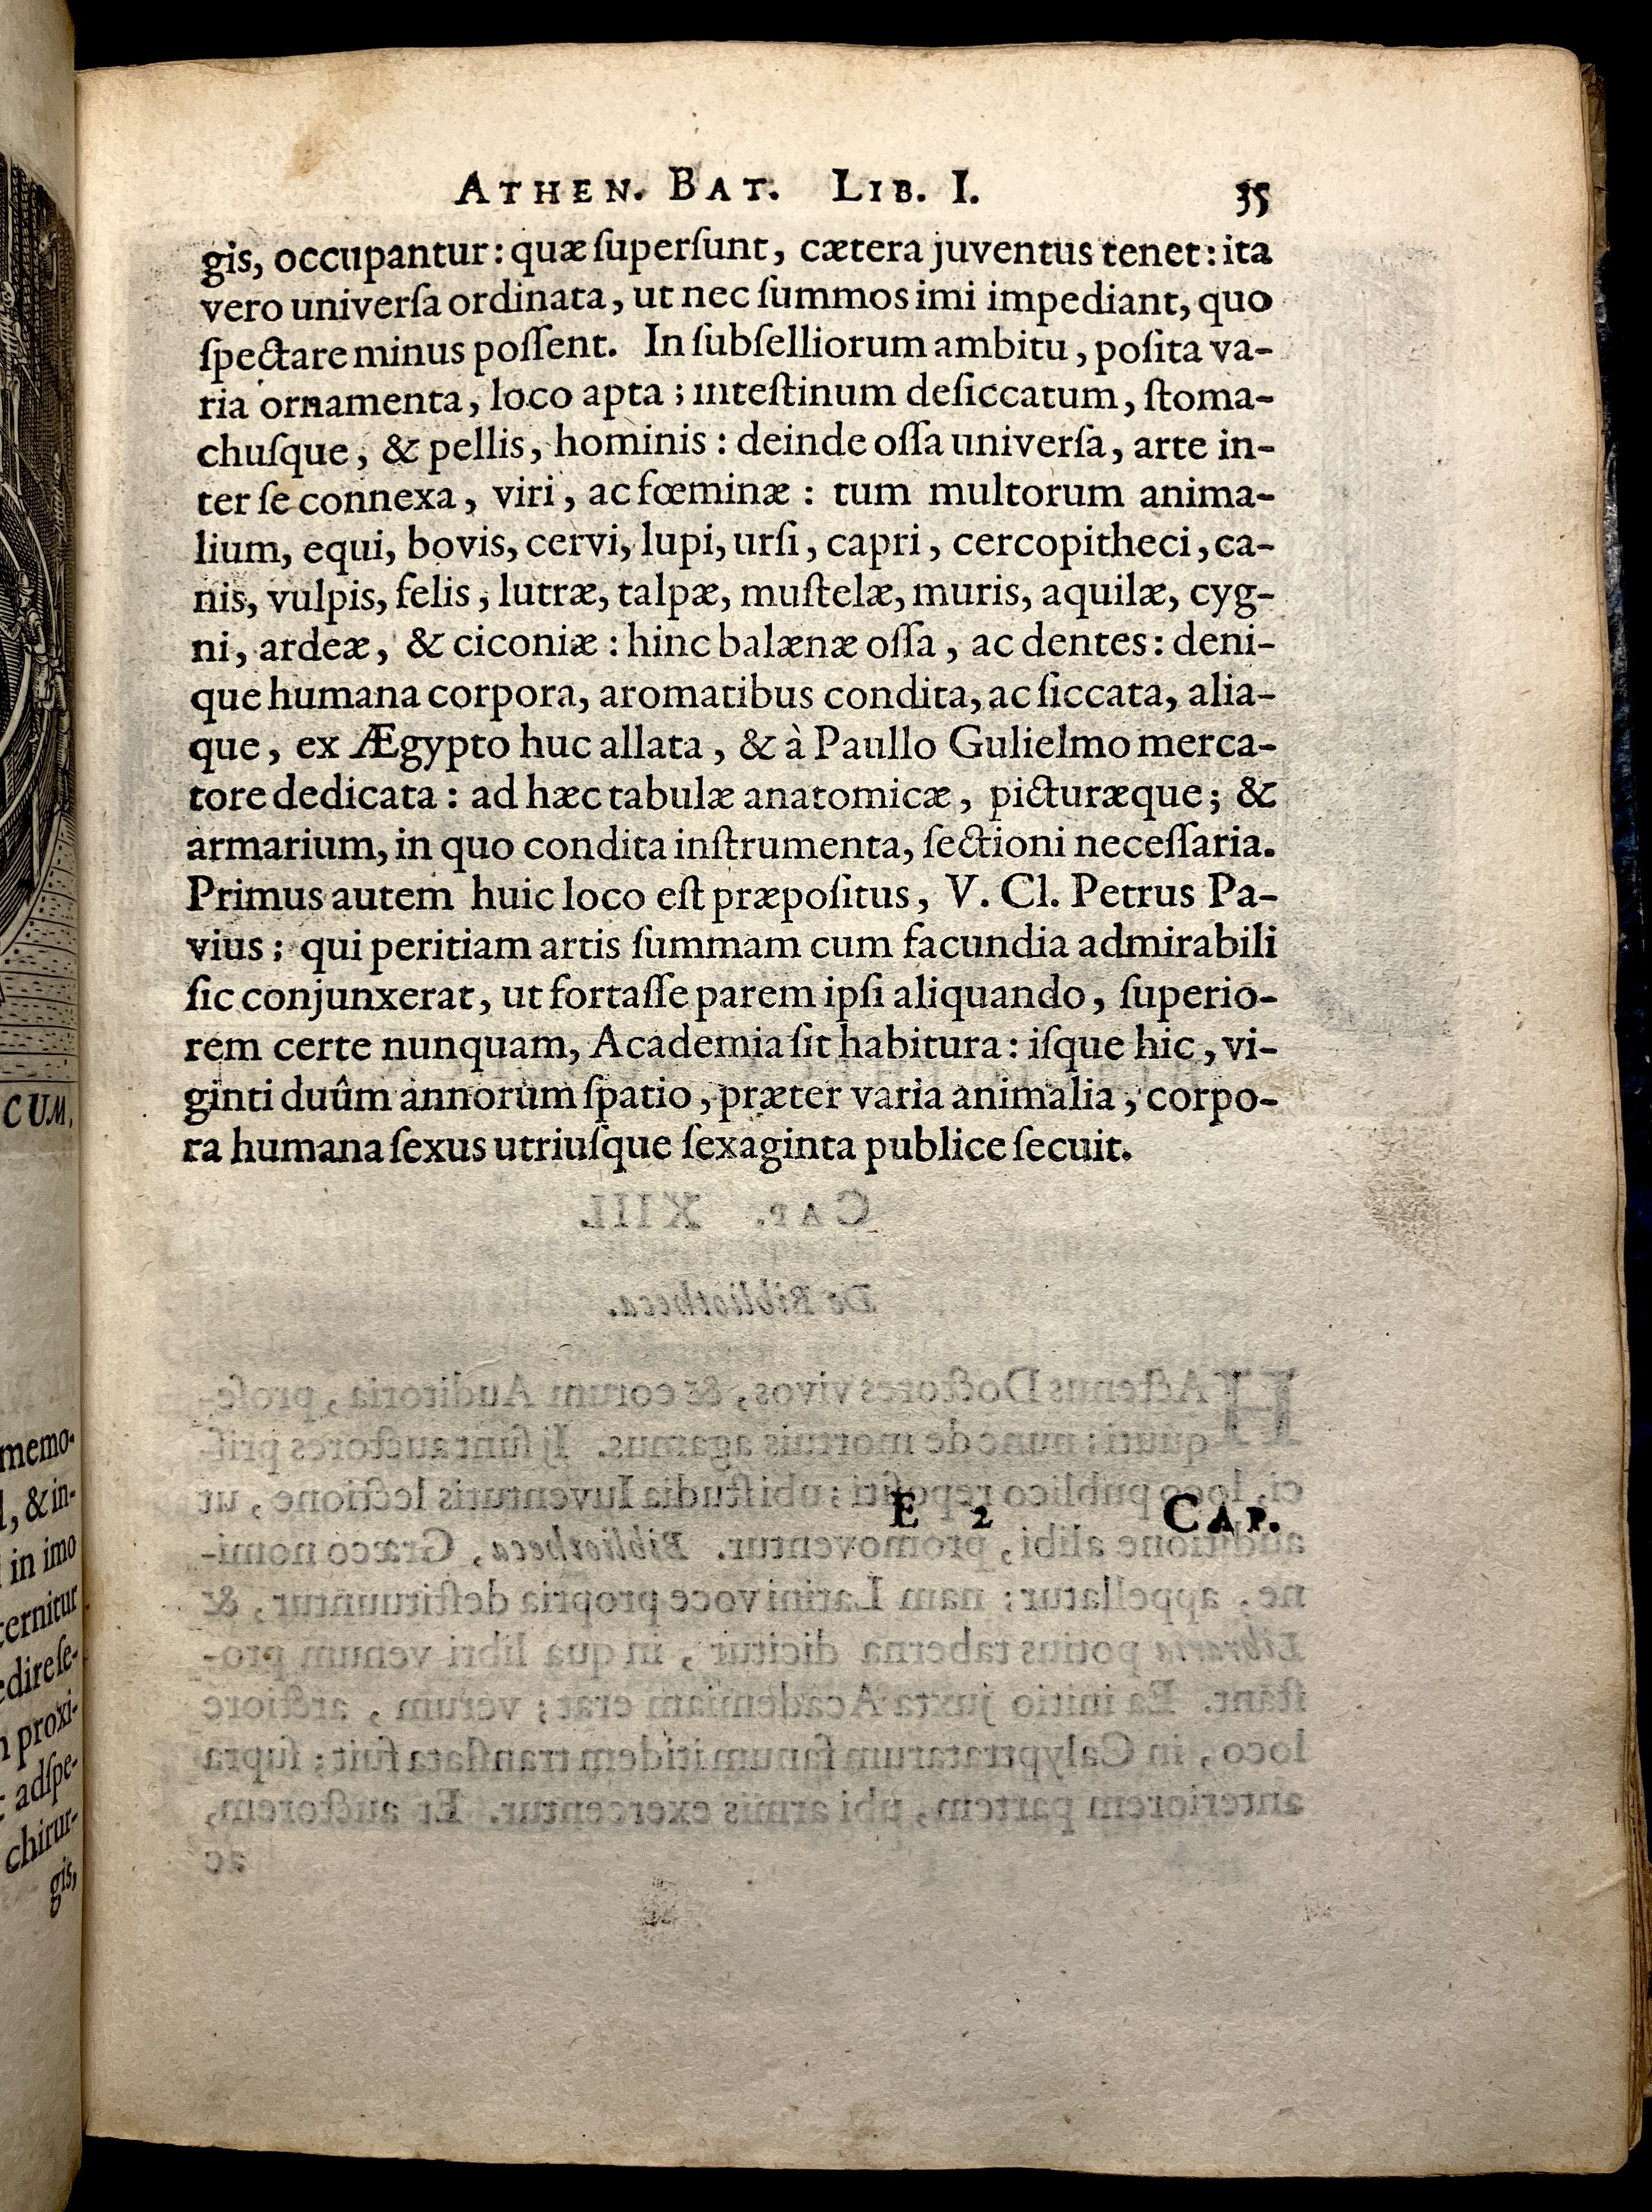 ATHEN. BAT. LIB. I. 35
gis, occupantur: quæ ſuperſunt, cætera juventus tenet: ita
vero univerſa ordinata, ut nec ſummos imi impediant, quo
ſpectare minus poſſent. In ſubſelliorum ambitu, poſita va-
ria ornamenta, loco apta; inteſtinum deſiccatum, ſtoma-
chuſque, & pellis, hominis: deinde oſſa univerſa, arte in-
ter ſe connexa, viri, ac fœminæ: tum multorum anima-
lium, equi, bovis, cervi, lupi, urſi, capri, cercopitheci, ca-
nis, vulpis, felis, lutræ, talpæ, muſtelæ, muris, aquilæ, cyg-
ni, ardeæ, & ciconiæ: hinc balænæ oſſa, ac dentes: deni-
que humana corpora, aromatibus condita, ac ſiccata, alia-
que, ex Ægypto huc allata, & à Paullo Gulielmo merca-
tore dedicata: ad hæc tabulæ anatomicæ, picturæque; &
armarium, in quo condita inſtrumenta, ſectioni neceſſaria.
Primus autem huic loco eſt præpoſitus, V. Cl. Petrus Pa-
vius: qui peritiam artis ſummam cum facundia admirabili
ſic conjunxerat, ut fortaſſe parem ipſi aliquando, ſuperio-
rem certe nunquam, Academia ſit habitura: iſque hic, vi-
ginti duûm annorum ſpatio, præter varia animalia, corpo-
ra humana ſexus utriuſque ſexaginta publice ſecuit.
E 2 CAP.
CUM.
memo-
, & in-
in imo
cernitur
edire ſe-
proxi-
adſpe-
chirur-
gis,